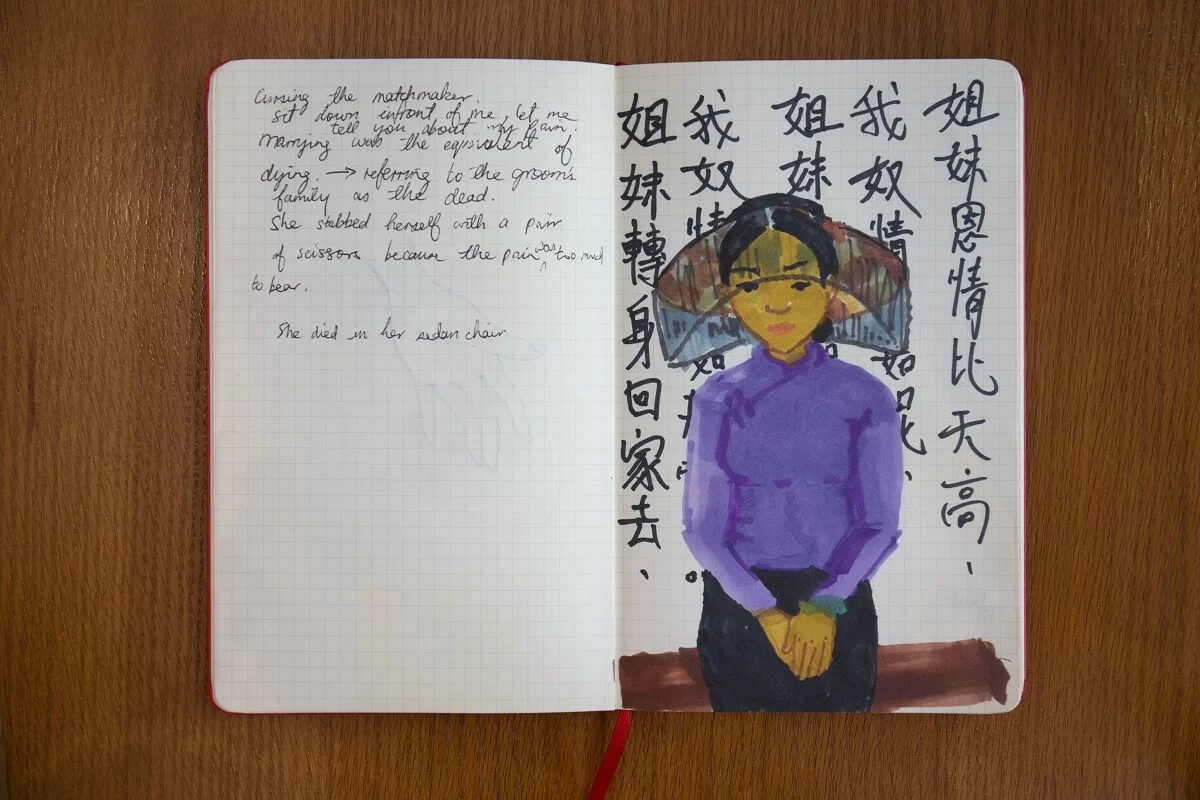 Cursing the matchmaker.
sit down infront of me, let me
tell you about my pain.
Marrying was the equivalent of
dying. → referring to the groom's
family as the dead.
She stabbed herself with a pair
of scissors because the pain was too much
to bear.
She died in her sedan chair
姐妹恩情比天高、
我奴情如
姐妹
我奴情如
姐妹轉身回家去、